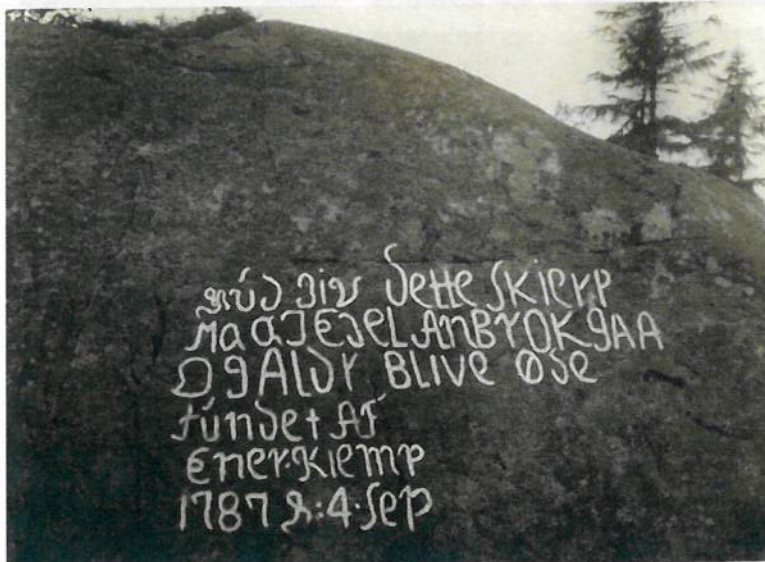 Gúd Giv dette skierp
Maa I EdeL AnBrOK gAA
Og ALdr BLIVe Øde
fúndet Af
Ener.Kiemp
1787 D:4.Sep